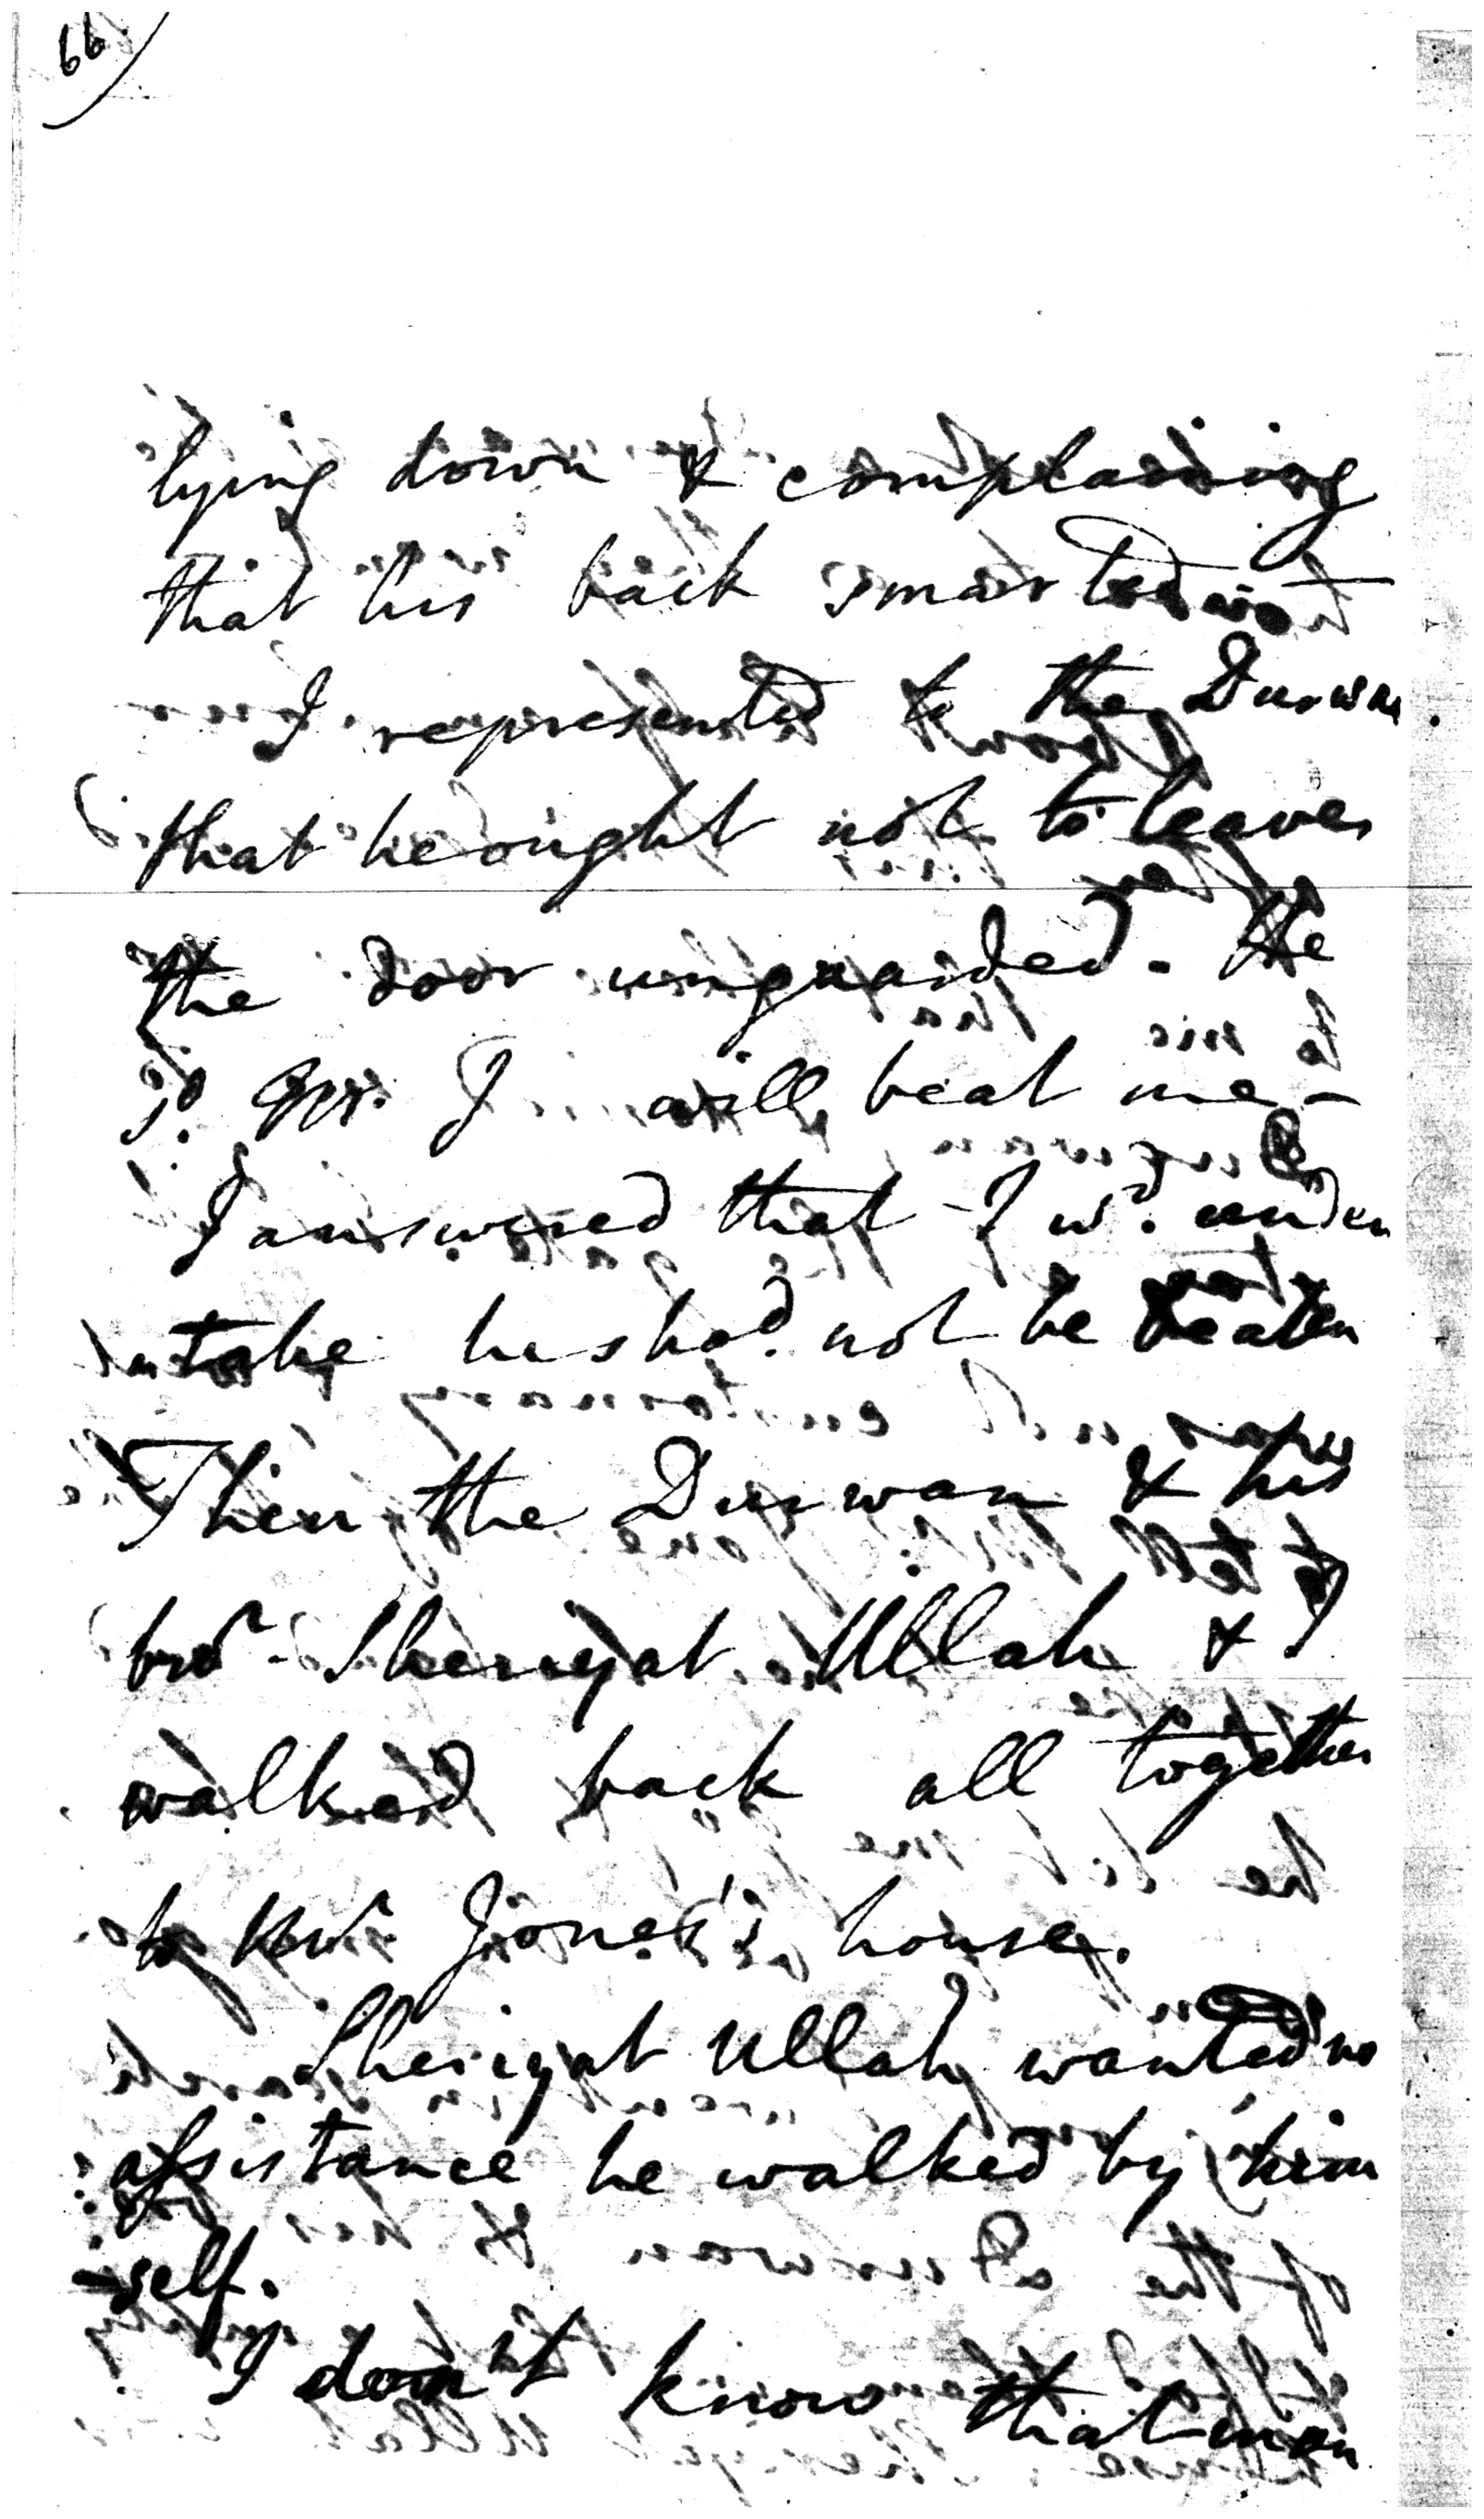 66)
lying down & complaining
that his back smarted
I represented to the Durwan.
that he ought not to leave
the door unguarded. He
sd. Mr. J will beat me -
I answered that I wd. under
take he shod. not be beaten
Then the Durwan & his
bror. Sheriyat Ullah & I
walked back all together
to Mr Jones's house.
Sheriyat Ullah wanted no
assistance he walked by him
self.
I don't know that man